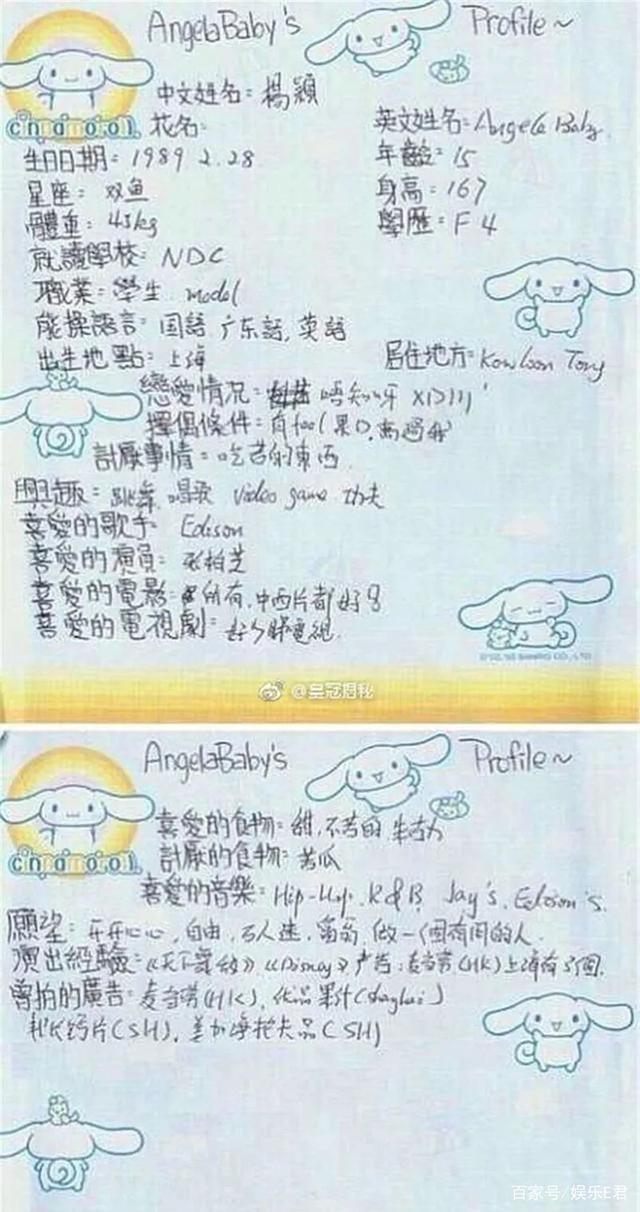 AngelaBaby's Profile~
中文姓名：楊穎
cinnamoroll 花名： 英文姓名：Angela Baby
生日日期：1989.2.28 年齡：15
星座：双鱼 身高：167
體重：45kg 學歷：F 4
就讀學校：NDC
職業：學生. model
能操語言：国語,广东話,英語
出生地點：上海 居住地方：Kowloon Tong
戀愛情况： 唔知呀 XD
擇偶條件：有feel 高過我
討厭事情：吃苦的東西
興趣：跳舞 唱歌 video game 功夫
喜愛的歌手：Edison
喜愛的演員：张柏芝
喜愛的電影：所有,中西片都好
喜愛的電視劇：好少睇電視
©'02,'03 SANRIO CO.,LTD
@皇冠揭秘
AngelaBaby's Profile~
cinnamoroll 喜愛的食物：甜,不苦的
討厭的食物：苦瓜
喜愛的音樂：Hip-Hop. R&B. Jay's. Edison's.
願望：开开心心,自由,万人迷, 做一個有用的人.
演出經驗： 《Disney》广告：麦当劳(HK)上海有5個.
曾拍的廣告：麦当劳(HK), 果汁(Shanghai)
钙片(SH), (SH)
百家号/娱乐E君